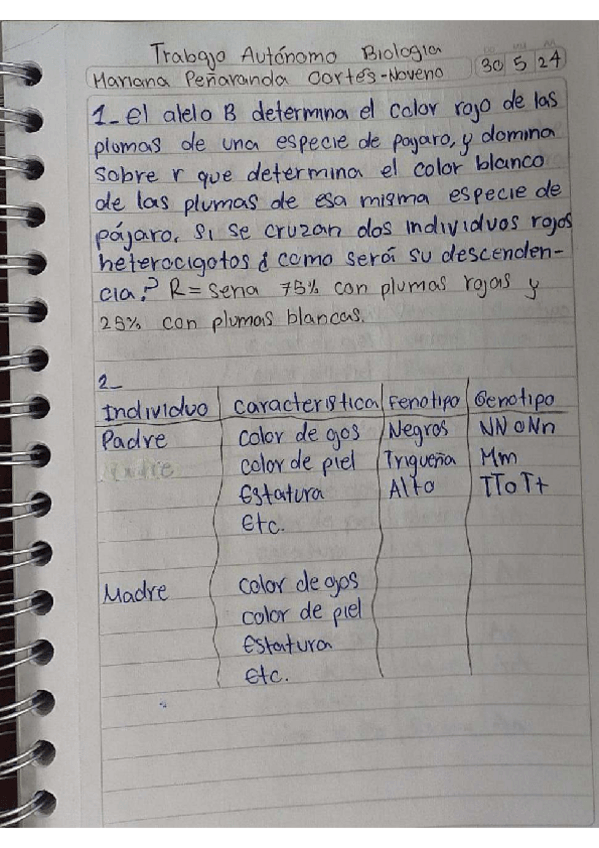 Trabajo Autónomo Biologia
Mariana Peñaranda Cortés-Noveno 30 5 24
1_ El alelo B determina el color rojo de las
plumas de una especie de pajaro, y domina
sobre r que determina el color blanco
de las plumas de esa misma especie de
pájaro. Si se cruzan dos individuos rojos
heterocigotos ¿ como será su descenden-
cia? R= seria 75% con plumas rojas y
25% con plumas blancas.
2_
Individuo Caracteristica Fenotipo Genotipo
Padre color de ojos Negros NN o Nn
color de piel Trigueña Mm
Estatura Alto TT o Tt
Etc.
Madre color de ojos
color de piel
Estatura
Etc.